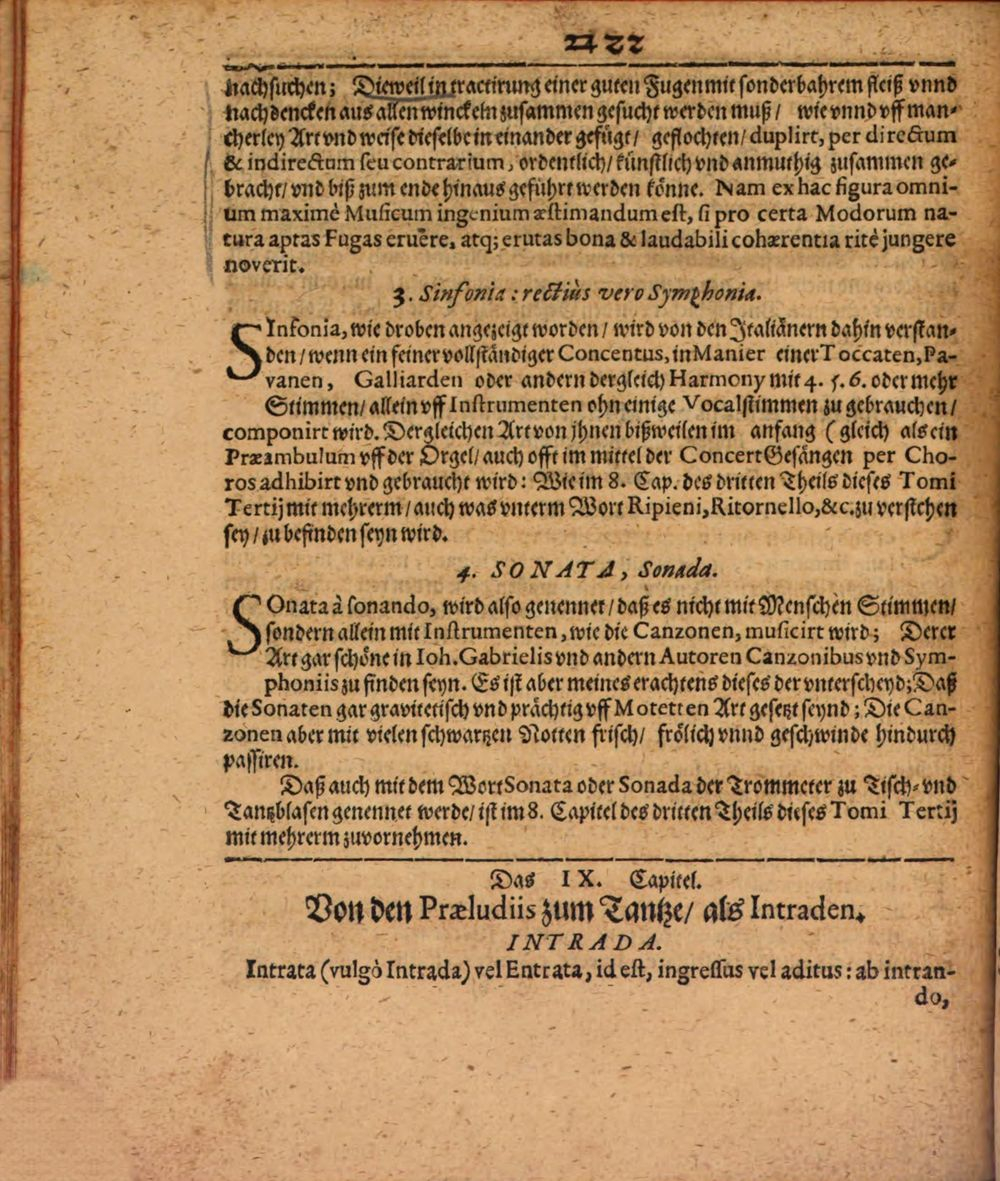 22
nachsuchen; Dieweil in tractirung einer guten Fugen mit sonderbahrem fleiß vnnd
nachdencken aus allen winckeln zusammen gesucht werden muß/ wie vnnd vff man-
cherley Art vnd weise dieselbe in einander gefügt/ geflochten/ duplirt, per directum
& indirectum seu contrarium, ordentlich/ künstlich vnd anmuthig zusammen ge-
bracht/ vnd biß zum ende hinaus geführt werden könne. Nam ex hac figura omni-
um maximè Musicum ingenium æstimandum est, si pro certa Modorum na-
tura aptas Fugas eruere, atq; erutas bona & laudabili cohærentia ritè jungere
noverit.
3. Sinfonia: rectiùs vero Symphonia.
SInfonia, wie droben angezeigt worden/ wird von den Italiänern dahin verstan-
den/ wenn ein feiner vollständiger Concentus, in Manier einer Toccaten, Pa-
vanen, Galliarden oder andern dergleich Harmony mit 4. 5. 6. oder mehr
Stimmen/ allein vff Instrumenten ohn einige Vocalstimmen zu gebrauchen/
componirt wird. Dergleichen Art von jhnen bißweilen im anfang (gleich als ein
Præambulum vff der Orgel/ auch offt im mittel der Concert Gesängen per Cho-
ros adhibirt vnd gebraucht wird: Wie im 8. Cap. des dritten Theils dieses Tomi
Tertij mit mehrerm/ auch was vnterm Wort Ripieni, Ritornello, &c. zu verstehen
sey/ zu befinden seyn wird.
4. SONATA, Sonada.
SOnata à sonando, wird also genennet/ daß es nicht mit Menschen Stimmen/
sondern allein mit Instrumenten, wie die Canzonen, musicirt wird; Derer
Art gar schöne in Ioh. Gabrielis vnd andern Autoren Canzonibus vnd Sym-
phoniis zu finden seyn. Es ist aber meines erachtens dieses der vnterscheyd; Daß
die Sonaten gar gravitetisch vnd prächtig vff Motetten Art gesetzt seynd; Die Can-
zonen aber mit vielen schwartzen Notten frisch/ frölich vnnd geschwinde hindurch
passiren.
Daß auch mit dem Wort Sonata oder Sonada der Trommeter zu Tisch- vnd
Tantzblasen genennet werde/ ist im 8. Capitel des dritten Theils dieses Tomi Tertij
mit mehrerm zuvornehmen.
Das IX. Capitel.
Von den Præludiis zum Tantze/ als Intraden.
INTRADA.
Intrata (vulgò Intrada) vel Entrata, id est, ingressus vel aditus: ab intran-
do,